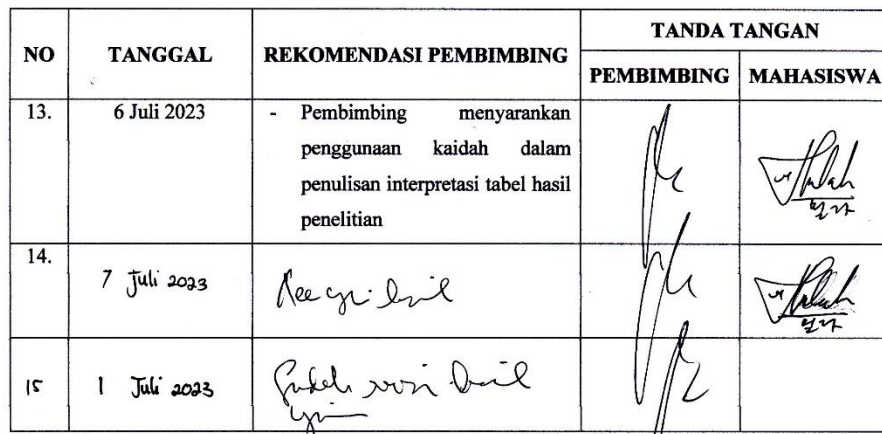 NO TANGGAL REKOMENDASI PEMBIMBING TANDA TANGAN
PEMBIMBING MAHASISWA
13. 6 Juli 2023 - Pembimbing menyarankan
penggunaan kaidah dalam
penulisan interpretasi tabel hasil
penelitian
14.
7 Juli 2023
15 1 Juli 2023